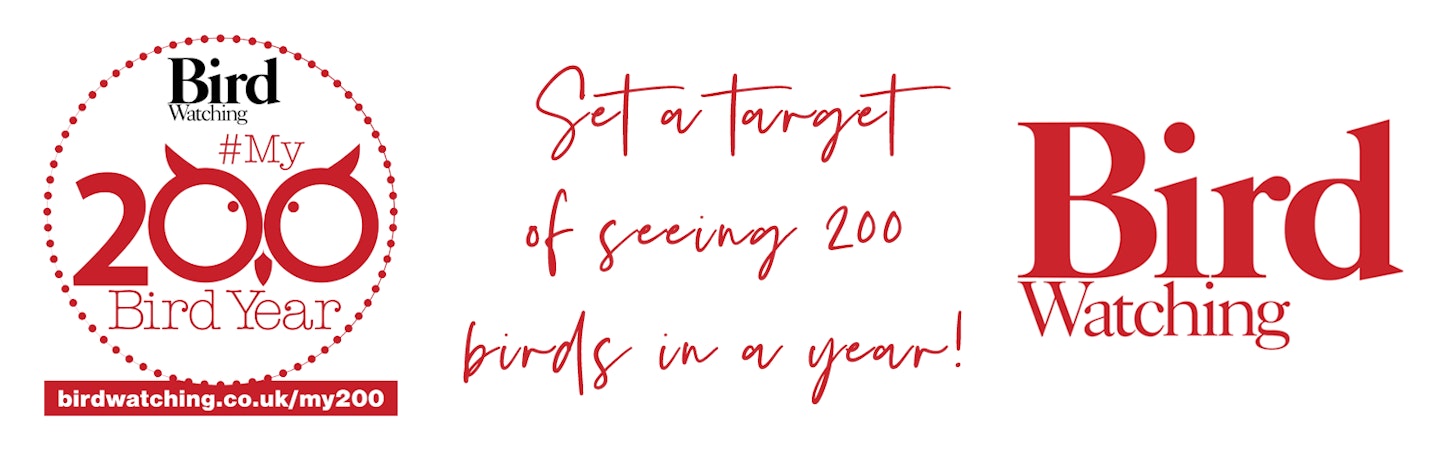 Bird
Watching
#My
200
Bird Year
birdwatching.co.uk/my200
Set a target
of seeing 200
birds in a year!
Bird
Watching